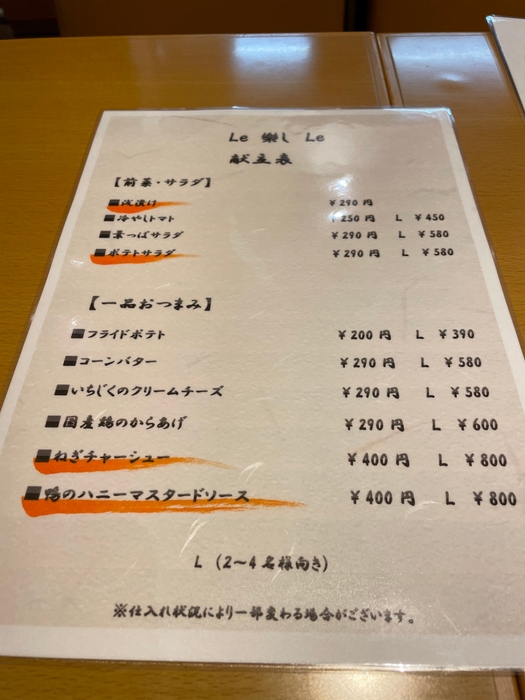 Le 樂し Le
献立表
【前菜・サラダ】
■浅漬け ￥290 円
■冷やしトマト ￥250 円 L ￥450
■葉っぱサラダ ￥290 円 L ￥580
■ポテトサラダ ￥290 円 L ￥580
【一品おつまみ】
■フライドポテト ￥200 円 L ￥390
■コーンバター ￥290 円 L ￥580
■いちじくのクリームチーズ ￥290 円 L ￥580
■国産鶏のからあげ ￥290 円 L ￥600
■ねぎチャーシュー ￥400 円 L ￥800
■鴨のハニーマスタードソース ￥400 円 L ￥800
L （2～4 名様向き）
※仕入れ状況により一部変わる場合がございます。